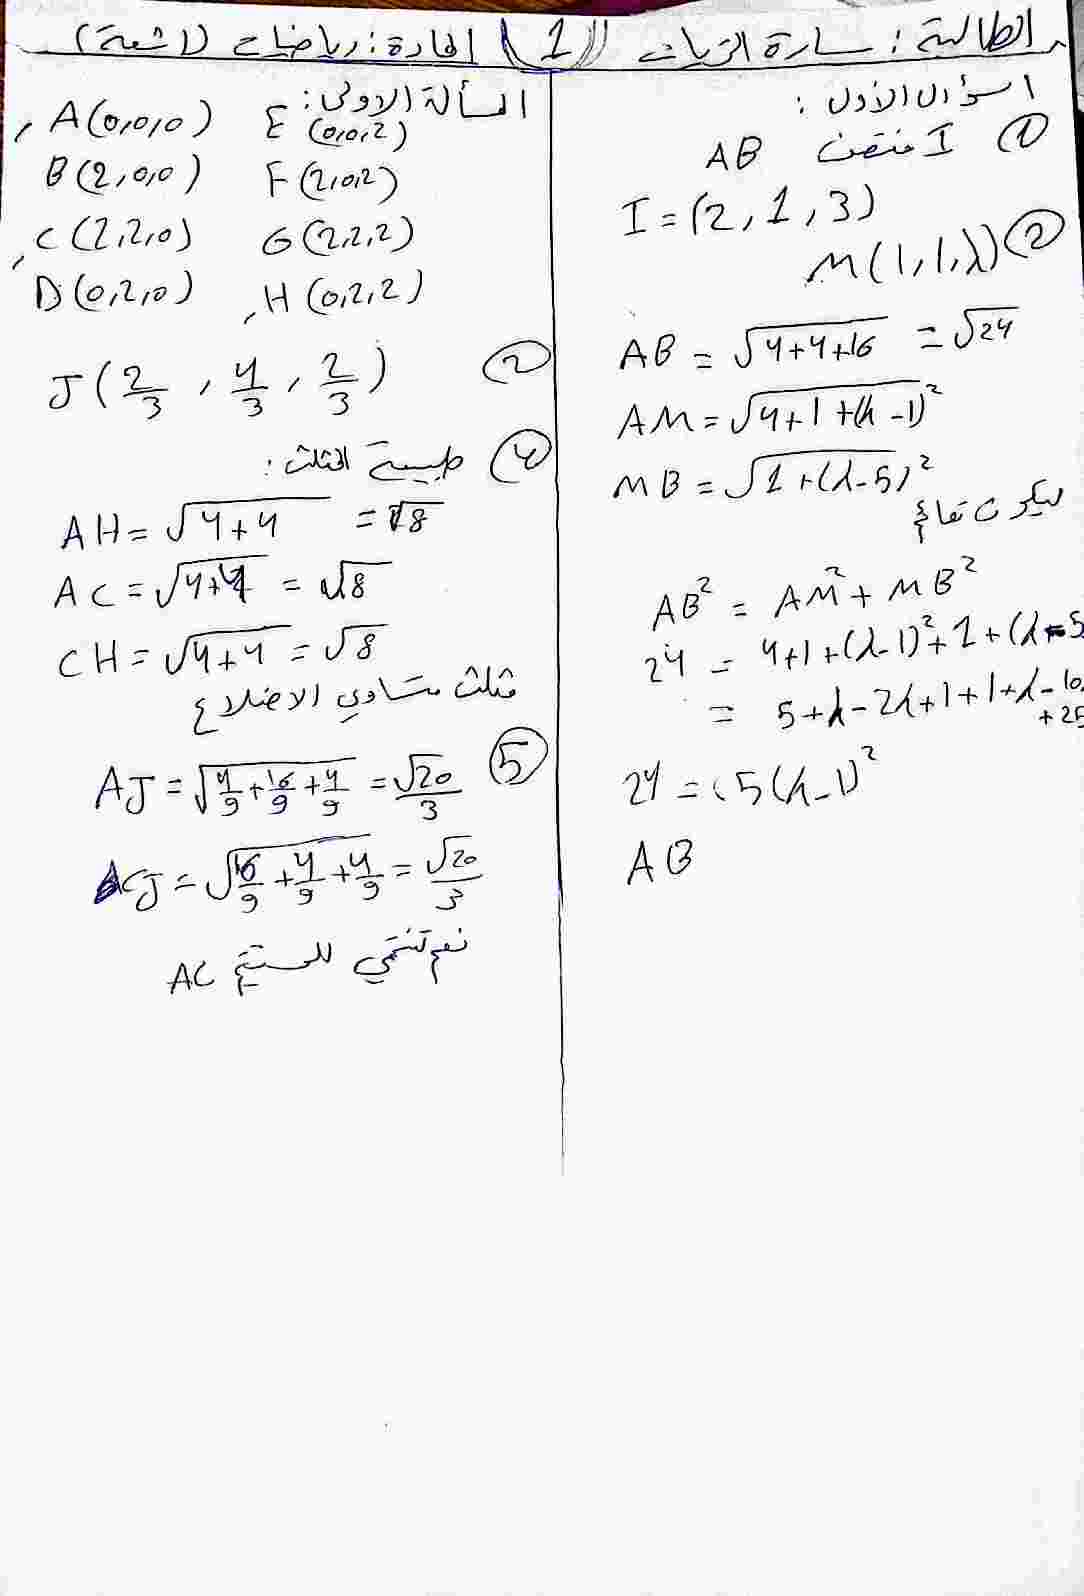 الطالبة : سارة الزيات (1) المادة : رياضيات (أشعة)
السؤال الأول :
① I منتصف AB
I = (2, 1, 3)
② M(1, 1, λ)
AB = √4+4+16 = √24
AM = √4+1+(λ-1)²
MB = √1+(λ-5)²
ليكون قائم
AB² = AM² + MB²
24 = 4+1+(λ-1)²+1+(λ-5
= 5+λ-2λ+1+1+λ-10
+25
24 = 5(λ-1)²
AB
المسألة الاولى :
A(0,0,0) E (0,0,2)
B(2,0,0) F(2,0,2)
C(2,2,0) G(2,2,2)
D(0,2,0) , H(0,2,2)
② J(2/3 , 4/3 , 2/3)
④ طبيعة المثلث :
AH = √4+4 = √8
AC = √4+4 = √8
CH = √4+4 = √8
مثلث متساوي الاضلاع
⑤ AJ = √4/9+16/9+4/9 = √20/3
CJ = √16/9+4/9+4/9 = √20/3
نعم تنتمي للمستقيم AC